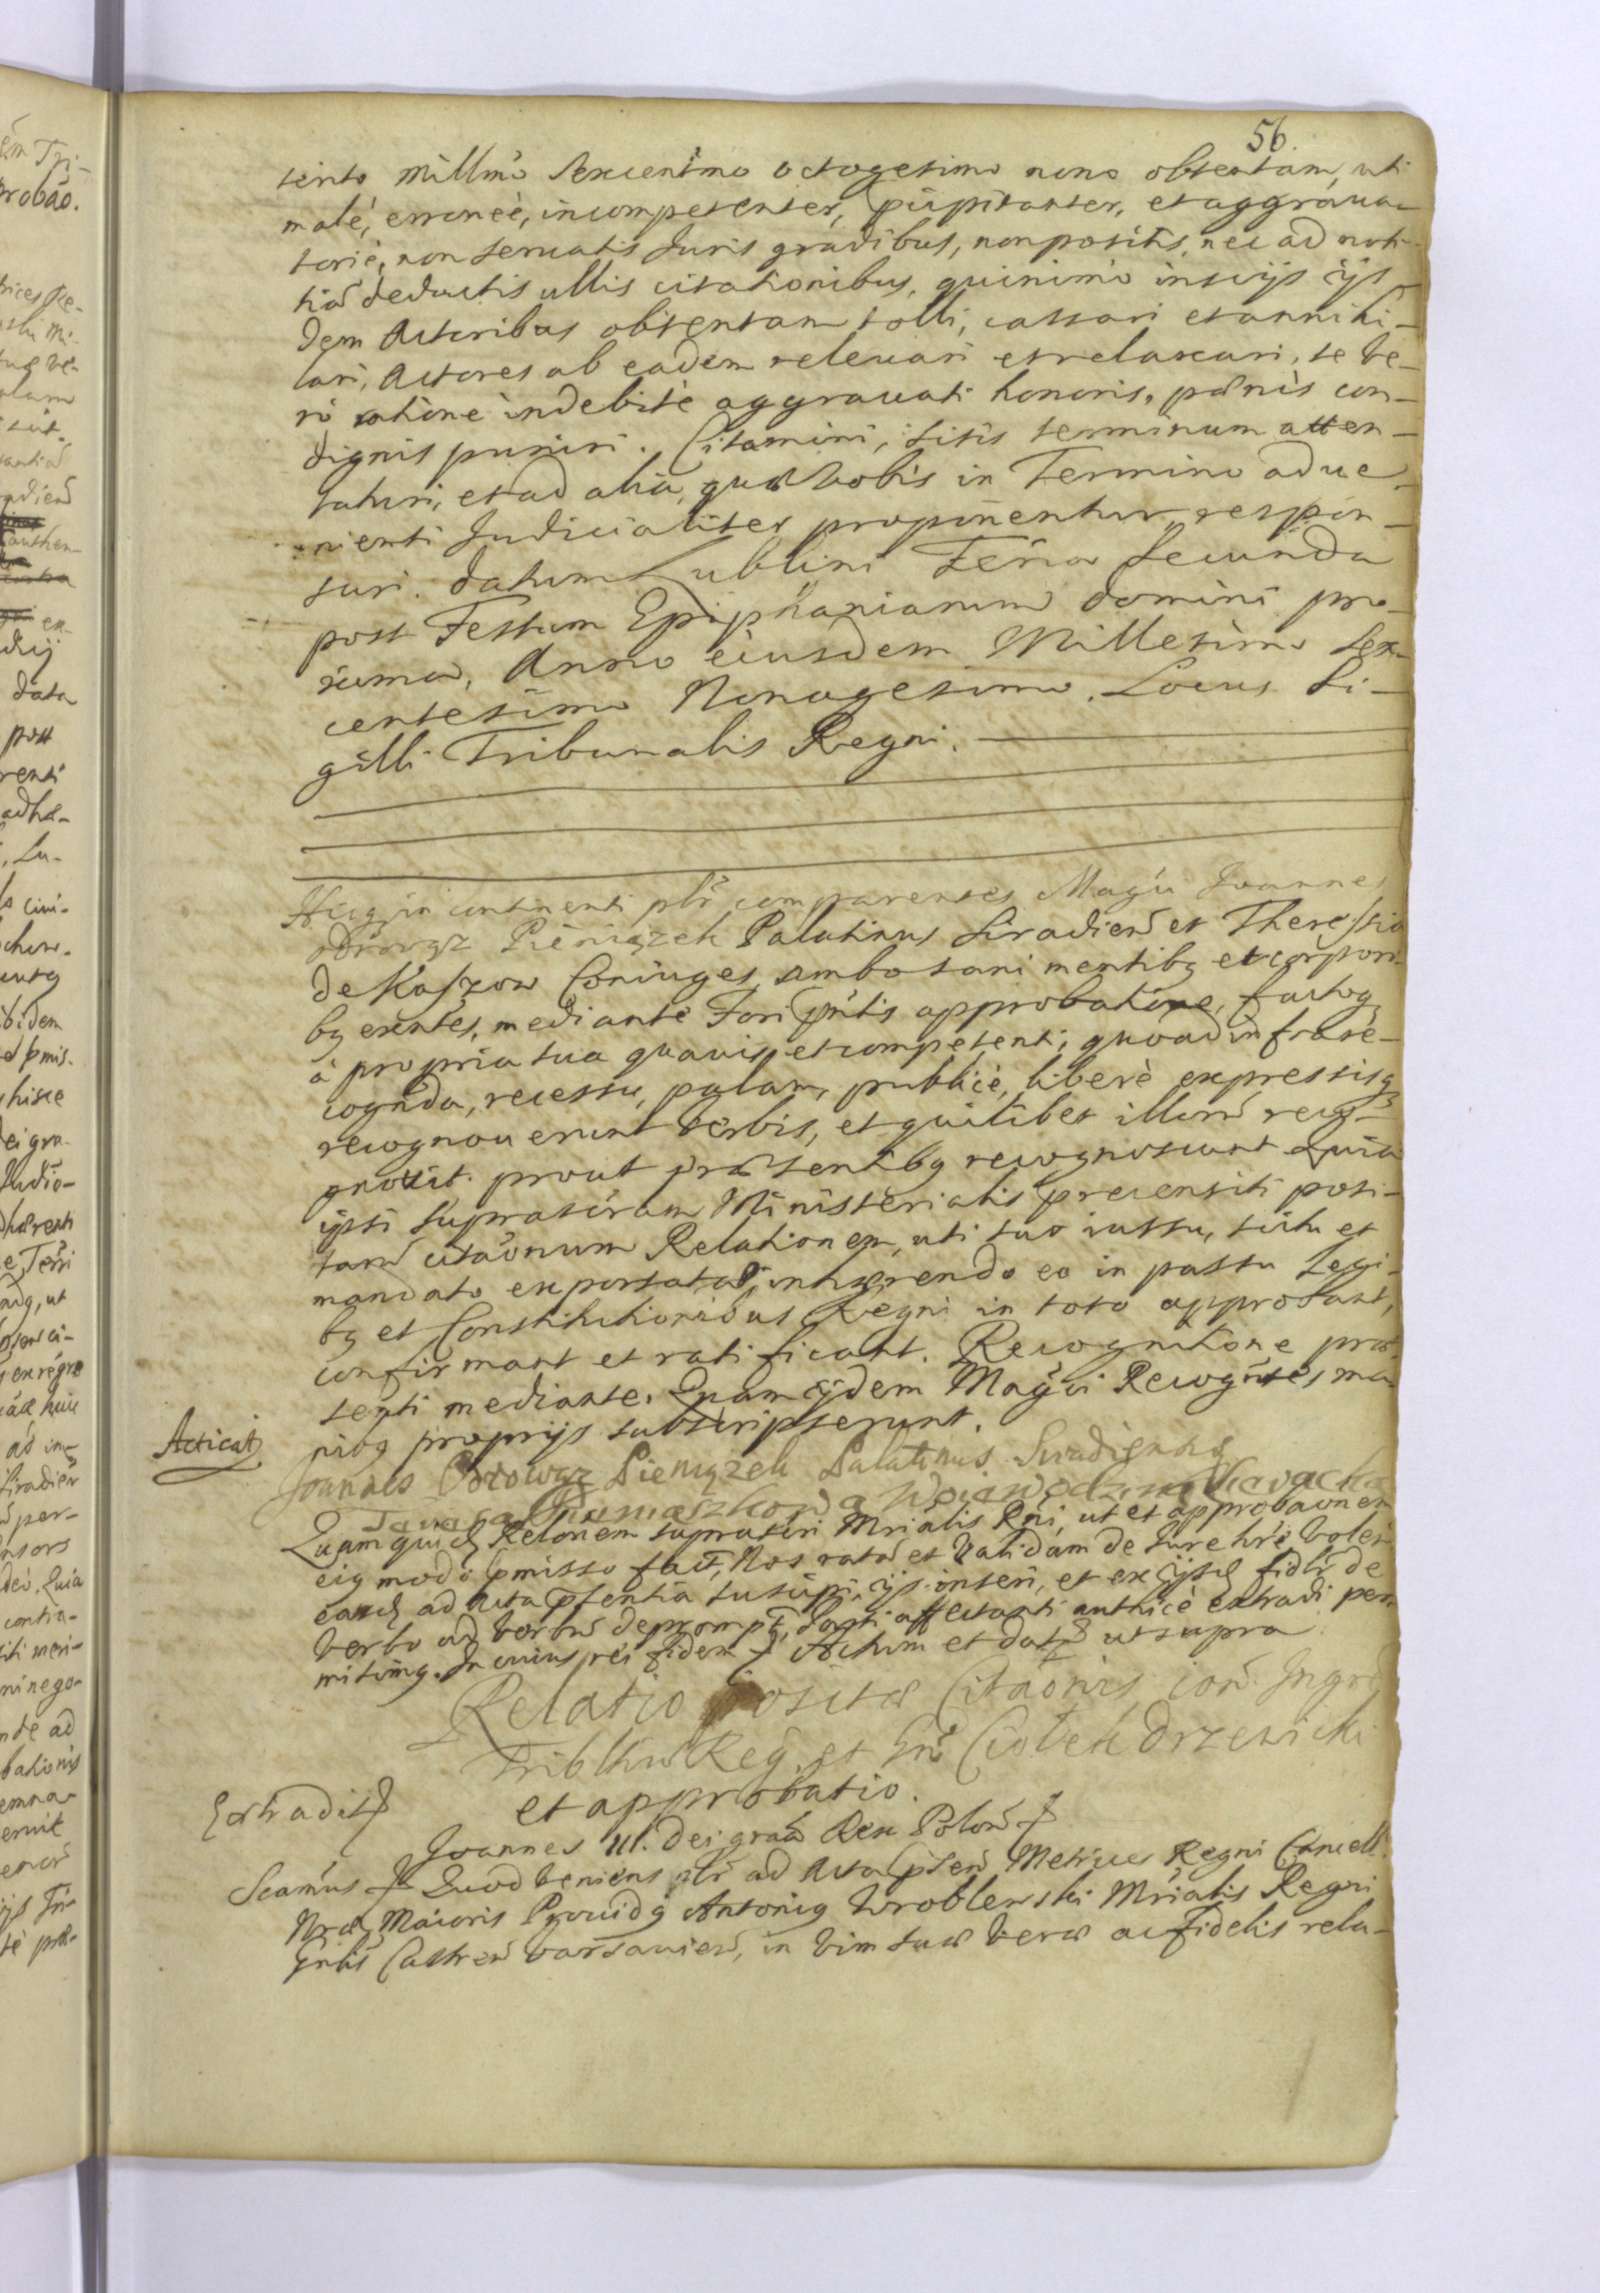 56.
tento Millmo Sexcentmo octogesimo nono obtentam, uti
malé, erroneè, incompetenter, præcipitanter, et aggraua-
toriè, non seruatis Juris gradibus, non positis, nec ad noti-
tiã deductis ullis citationibus, quinimò insciis ijs-
dem Actoribus obtentam tolli, cassari et annihi-
lari, Actores ab eadem releuari et relaxari, te ve-
rò ratione indebitè aggrauati honoris, pœnis con-
dignis puniri. Citamini, sitis terminum atten-
taturi, et ad alia, quæ vobis in Termino adue-
nienti Judicialiter proponentur respon-
suri. Datum Lublini Feria Secunda
post Festum Epiphaniarum Domini pro-
xima, Anno eiusdem Millesimo Sex-
centesimo Nonagesimo. Locus Si-
gilli Tribunalis Regni.
Hicq; in continenti plr̃ comparentes Magci Joannes
Odrowąz Pieniązek Palatinus Siradien̄ et Theressia
de Kaszow Coniuges ambo sani mentibq et corpori-
bq exntes, mediante Fori pñtis approbatione, factoq
à propria sua quauis et competenti, quoad infra re-
cognda, recessu, palam, publicè, liberè expressisq
recognouerunt verbis, et quilibet illorũ recog-
nouit. prout præsentibq recognoscunt Quia
ipsi suprascriram Ministerialis precensiti posi-
tarũ citaõnum Relationem, uti suo iussu, scitu et
mandato exportataꝝ, inhærendo eo in passu Legi-
bq et Constitutionibus Regni in toto approbant,
confirmant et ratificant. Recognitione præ-
senti mediante. Quam ijdem Magci Recogntes ma-
nibq proprijs subscripserunt.
Acticat
Joannes Odrowąz Pieniązek Palatinus Siradiensis
Woiewodzina Sieracka
Quam quid Relõnem suprascri Mrialis Rni, ut et approbaõnem
eiq modo p̃misso fact, Nos ratã et validam de Jure hr̃e volen
eand ad Acta p̃sentia suscipi, ijs inseri, et ex ijsd fidlr̃ de
verbo ad verbũ deprompt, Parti affectanti authcè extradi per-
mitimq. In cuius rei fidem Actum et dat ut supra
Relatio positæ Citaõnis corã Jngr̃
Triblhw Reg. et Gñd Ciołek Drzewicki
et approbatio.
Extradit
Joannes III. Dei graã Rex Polon̄
Scamus Quod veniens plr̃ ad Acta p̃sen Metrices Regni Cancell.
Nræ Maioris Prouidq Antoniq Wroblewski Mrialis Regni
Gnlis Castren̄ Varsauien̄, in vim suæ veræ ac fidelis rela-